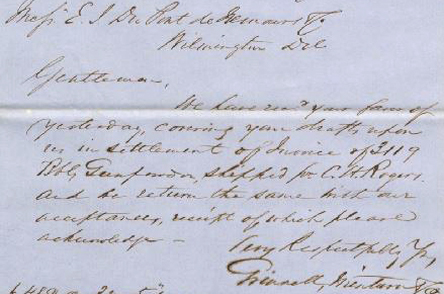 Mess E. I Du Pont de Nemours & Co
Wilmington Del
Gentlemen,
We have rec'd your favor of
yesterday, covering your drafts upon
us in settlement of Invoice of 3119
Bbls Gunpowder, shipped pr C. H. Rogers.
and we return the same with our
acceptances, receipt of which please
acknowledge –
Very Respectfully Yrs,
Grinnell, Minturn & Co